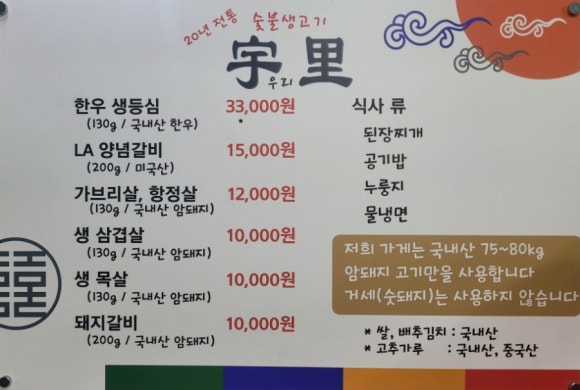 20년 전통 숯불생고기
宇里
우리
한우 생등심 33,000원
(130g / 국내산 한우)
LA 양념갈비 15,000원
(200g / 미국산)
가브리살, 항정살 12,000원
(130g / 국내산 암돼지)
생 삼겹살 10,000원
(130g / 국내산 암돼지)
생 목살 10,000원
(130g / 국내산 암돼지)
돼지갈비 10,000원
(200g / 국내산 암돼지)
식사 류
된장찌개
공기밥
누룽지
물냉면
저희 가게는 국내산 75~80kg
암돼지 고기만을 사용합니다
거세(숫돼지)는 사용하지 않습니다
* 쌀, 배추김치 : 국내산
* 고추가루 : 국내산, 중국산